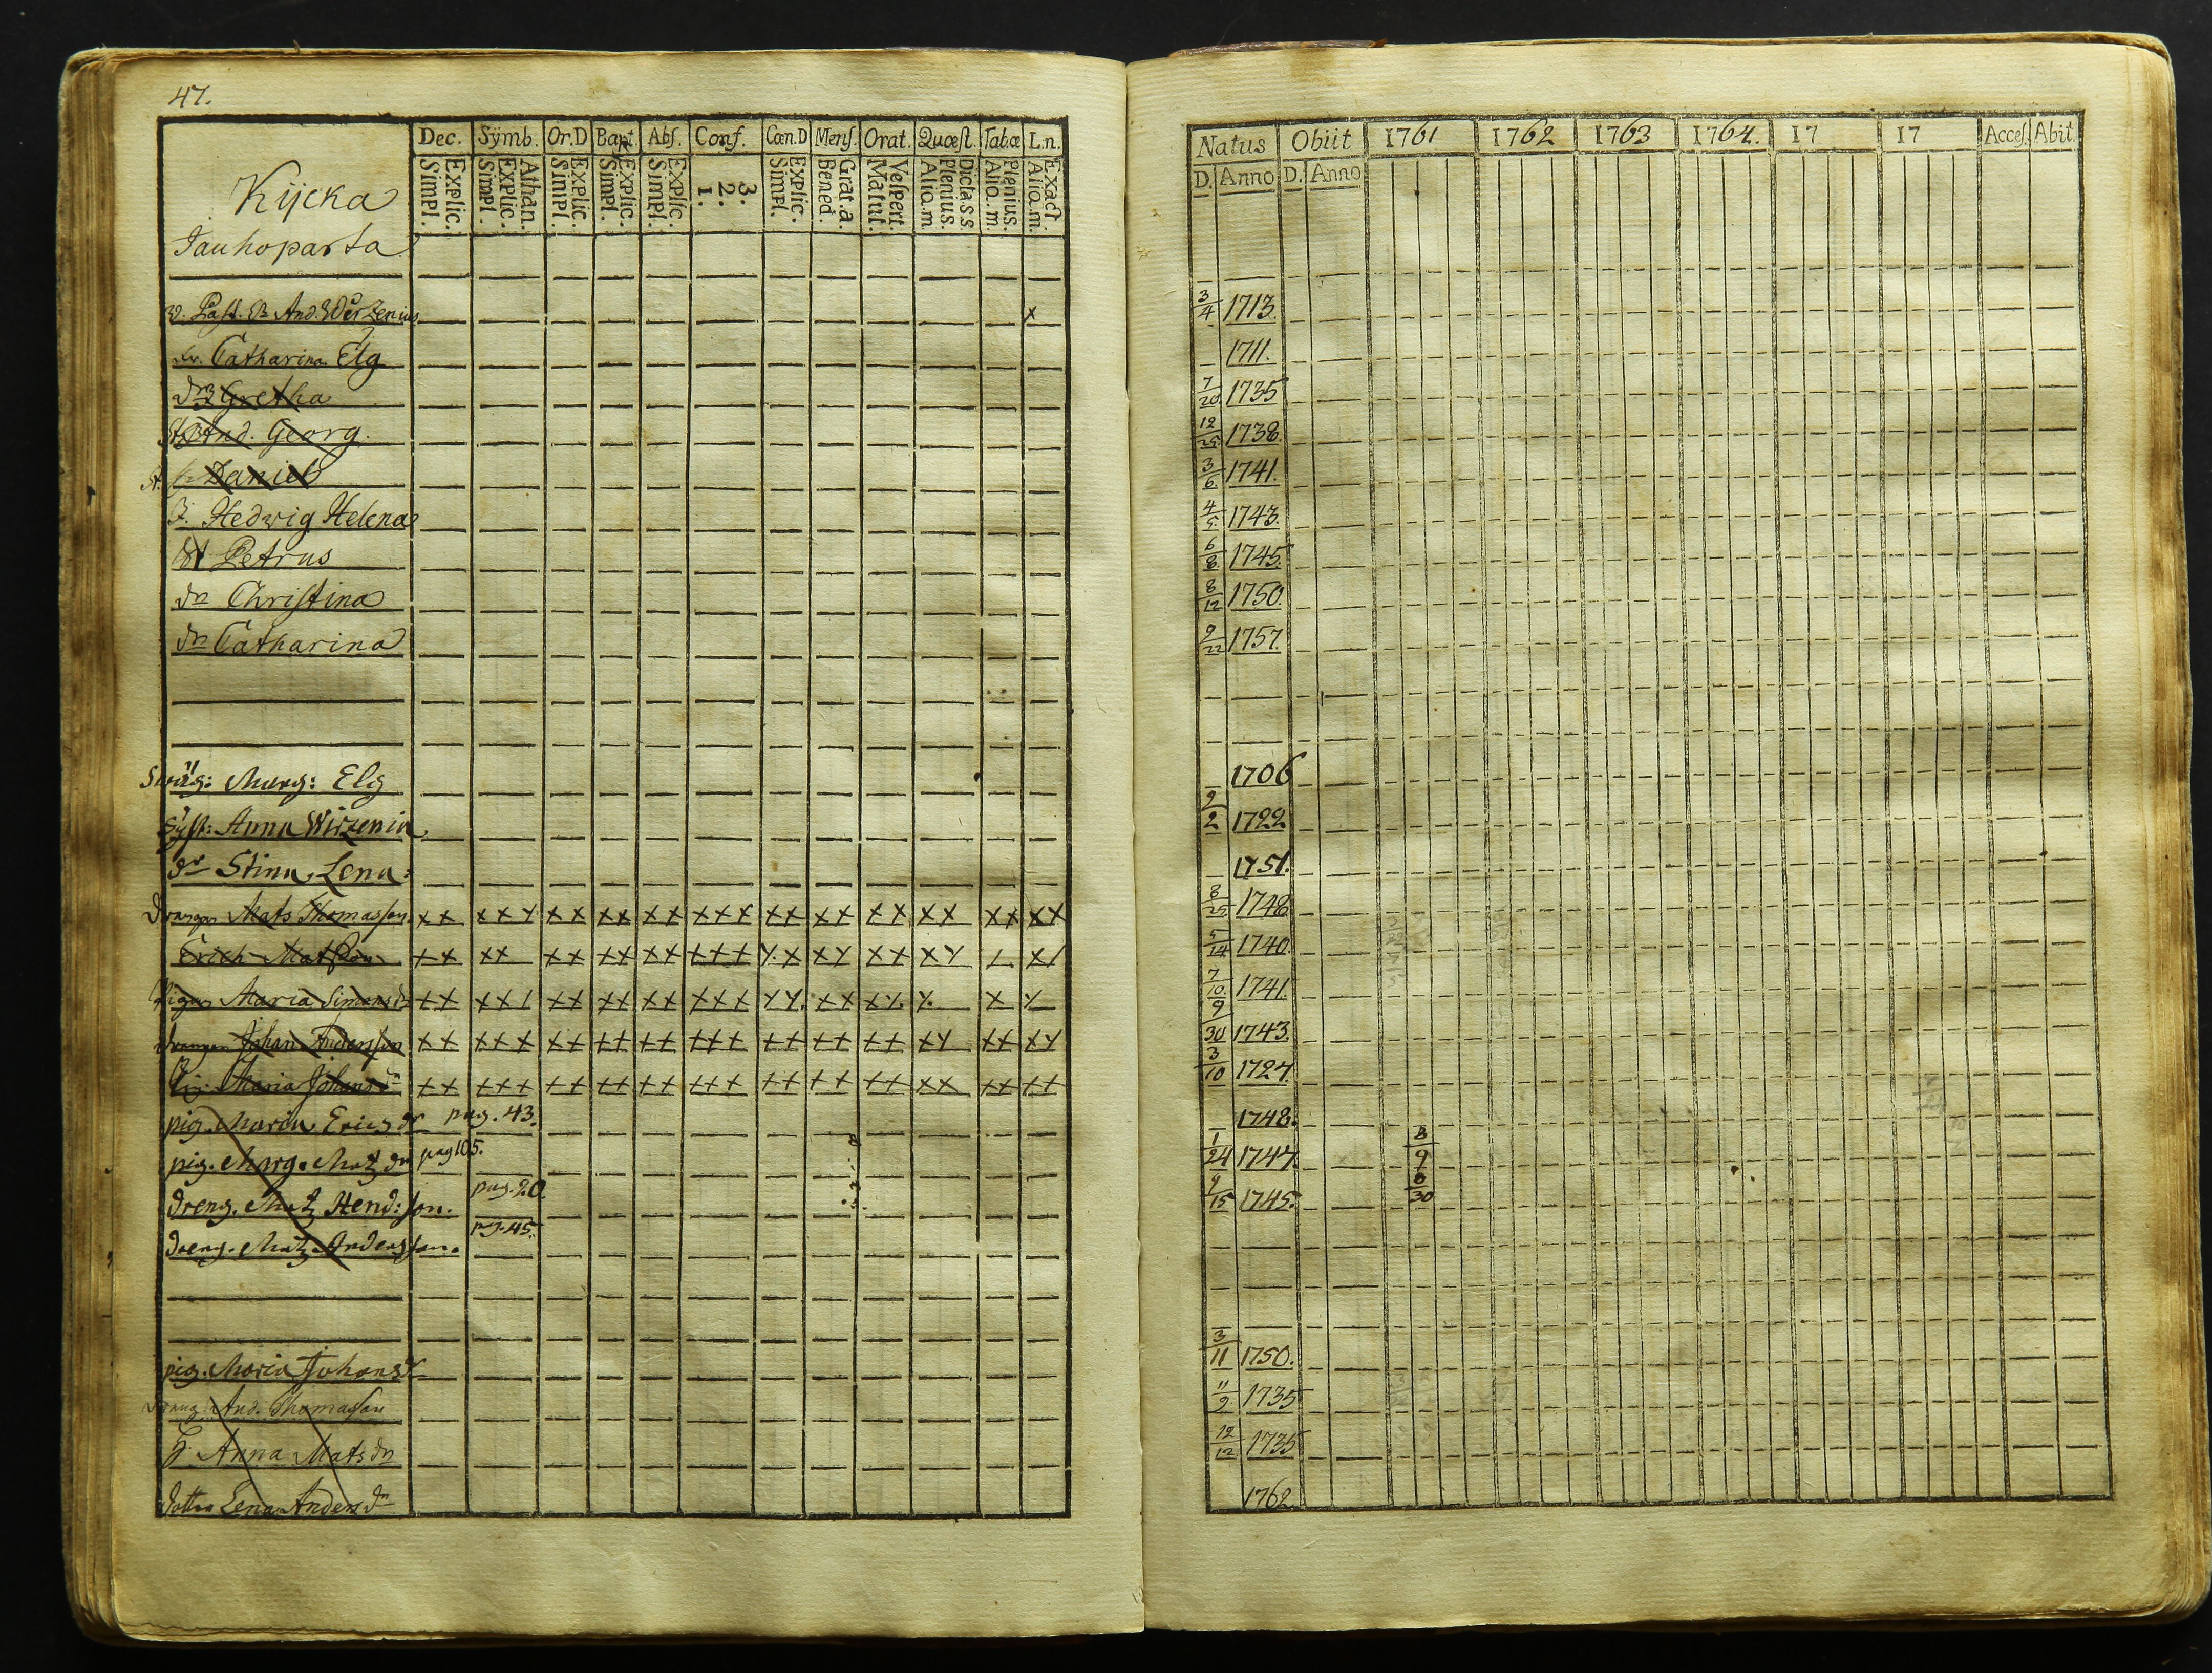 47.
Dec. Sÿmb. Or.D Bapt. Abſ. Conf. Cœn.D Menſ. Orat. Quæſt. Tab.œ L.n.
Explic. Simpl. Athan. Explic. Simpl. Explic. Simpl. Explic. Simpl. Explic. Simpl. 3. 2. 1. Explic. Simpl. Grat.a. Bened. Veſpert. Matut. Dicta.s.s Plenius. Alio.m Plenius. Alio.m. Exact. Alio.m.
Kijcka
Jauhoparta
And. Wirzenius x
Catharina Elg
Dr Gretha
And. Georg.
Daniel
Hedwig Helena
Petrus
Dr Chriſtina
Dr Catharina
Swäg: Marg: Elg
Syſt: Anna Wirzenia
dr Stina Lena:
Drängen Mats Thomasſon x x x x x x x x x x x x x x x x x x x x x x x x x x
Erich Matsſon x x x x x x x x x x x x x x x x x x x x x x x x
Pigan Maria Simonsdr x x x x x x x x x x x x x x x x x x x x x x x
Drängen Johan Andersſon x x x x x x x x x x x x x x x x x x x x x x x x x x
Pig. Maria Johansdr x x x x x x x x x x x x x x x x x x x x x x x x x x
pig. Maria Ericsdr pag. 43.
pig. Marg. Matzdr pag 105.
dreng. Matz Hend:ſon. pag. 20.
dreng. Matz Andersſon. pg. 45.
pig. Maria Johansdr
dräng And. Thomasſon
H. Anna Matsdr
dottren Lena Andersdr
Natus Obiit 1761 1762 1763 1764. 17 17 Acceſ. Abit.
D. Anno D. Anno
3/4 1713.
1711.
7/20 1735
12/25 1738.
3/6 1741.
4/5 1743.
6/8 1745.
8/12 1750.
9/22 1757.
1706
9/2 1722
1751.
8/25 1748
5/14 1740.
7/10 1741.
9/30 1743.
3/10 1727.
1748.
1/24 1747. 8/9
9/15 1745. 8/30
3/11 1750.
11/9 1735
12/12 1735
1762.